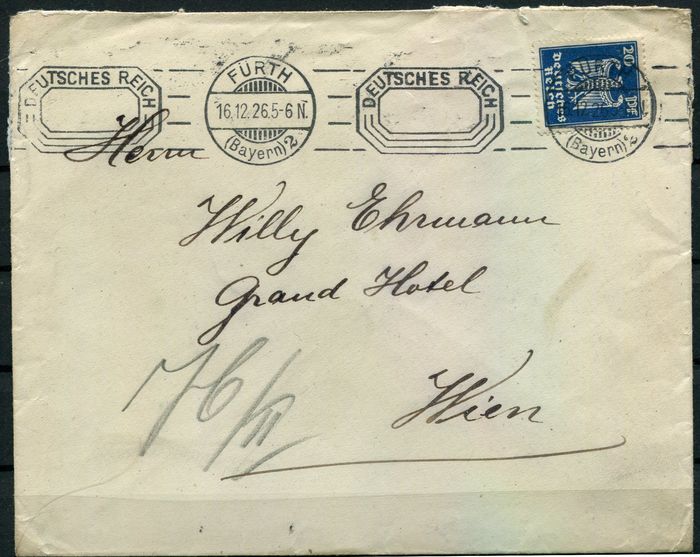 DEUTSCHES REICH
FÜRTH
16.12.26.5-6 N.
(Bayern) 2
DEUTSCHES REICH
20 Pf
Deutsches Reich
(Bayern) 2
Herrn
Willy Ehrmann
Grand Hotel
Wien